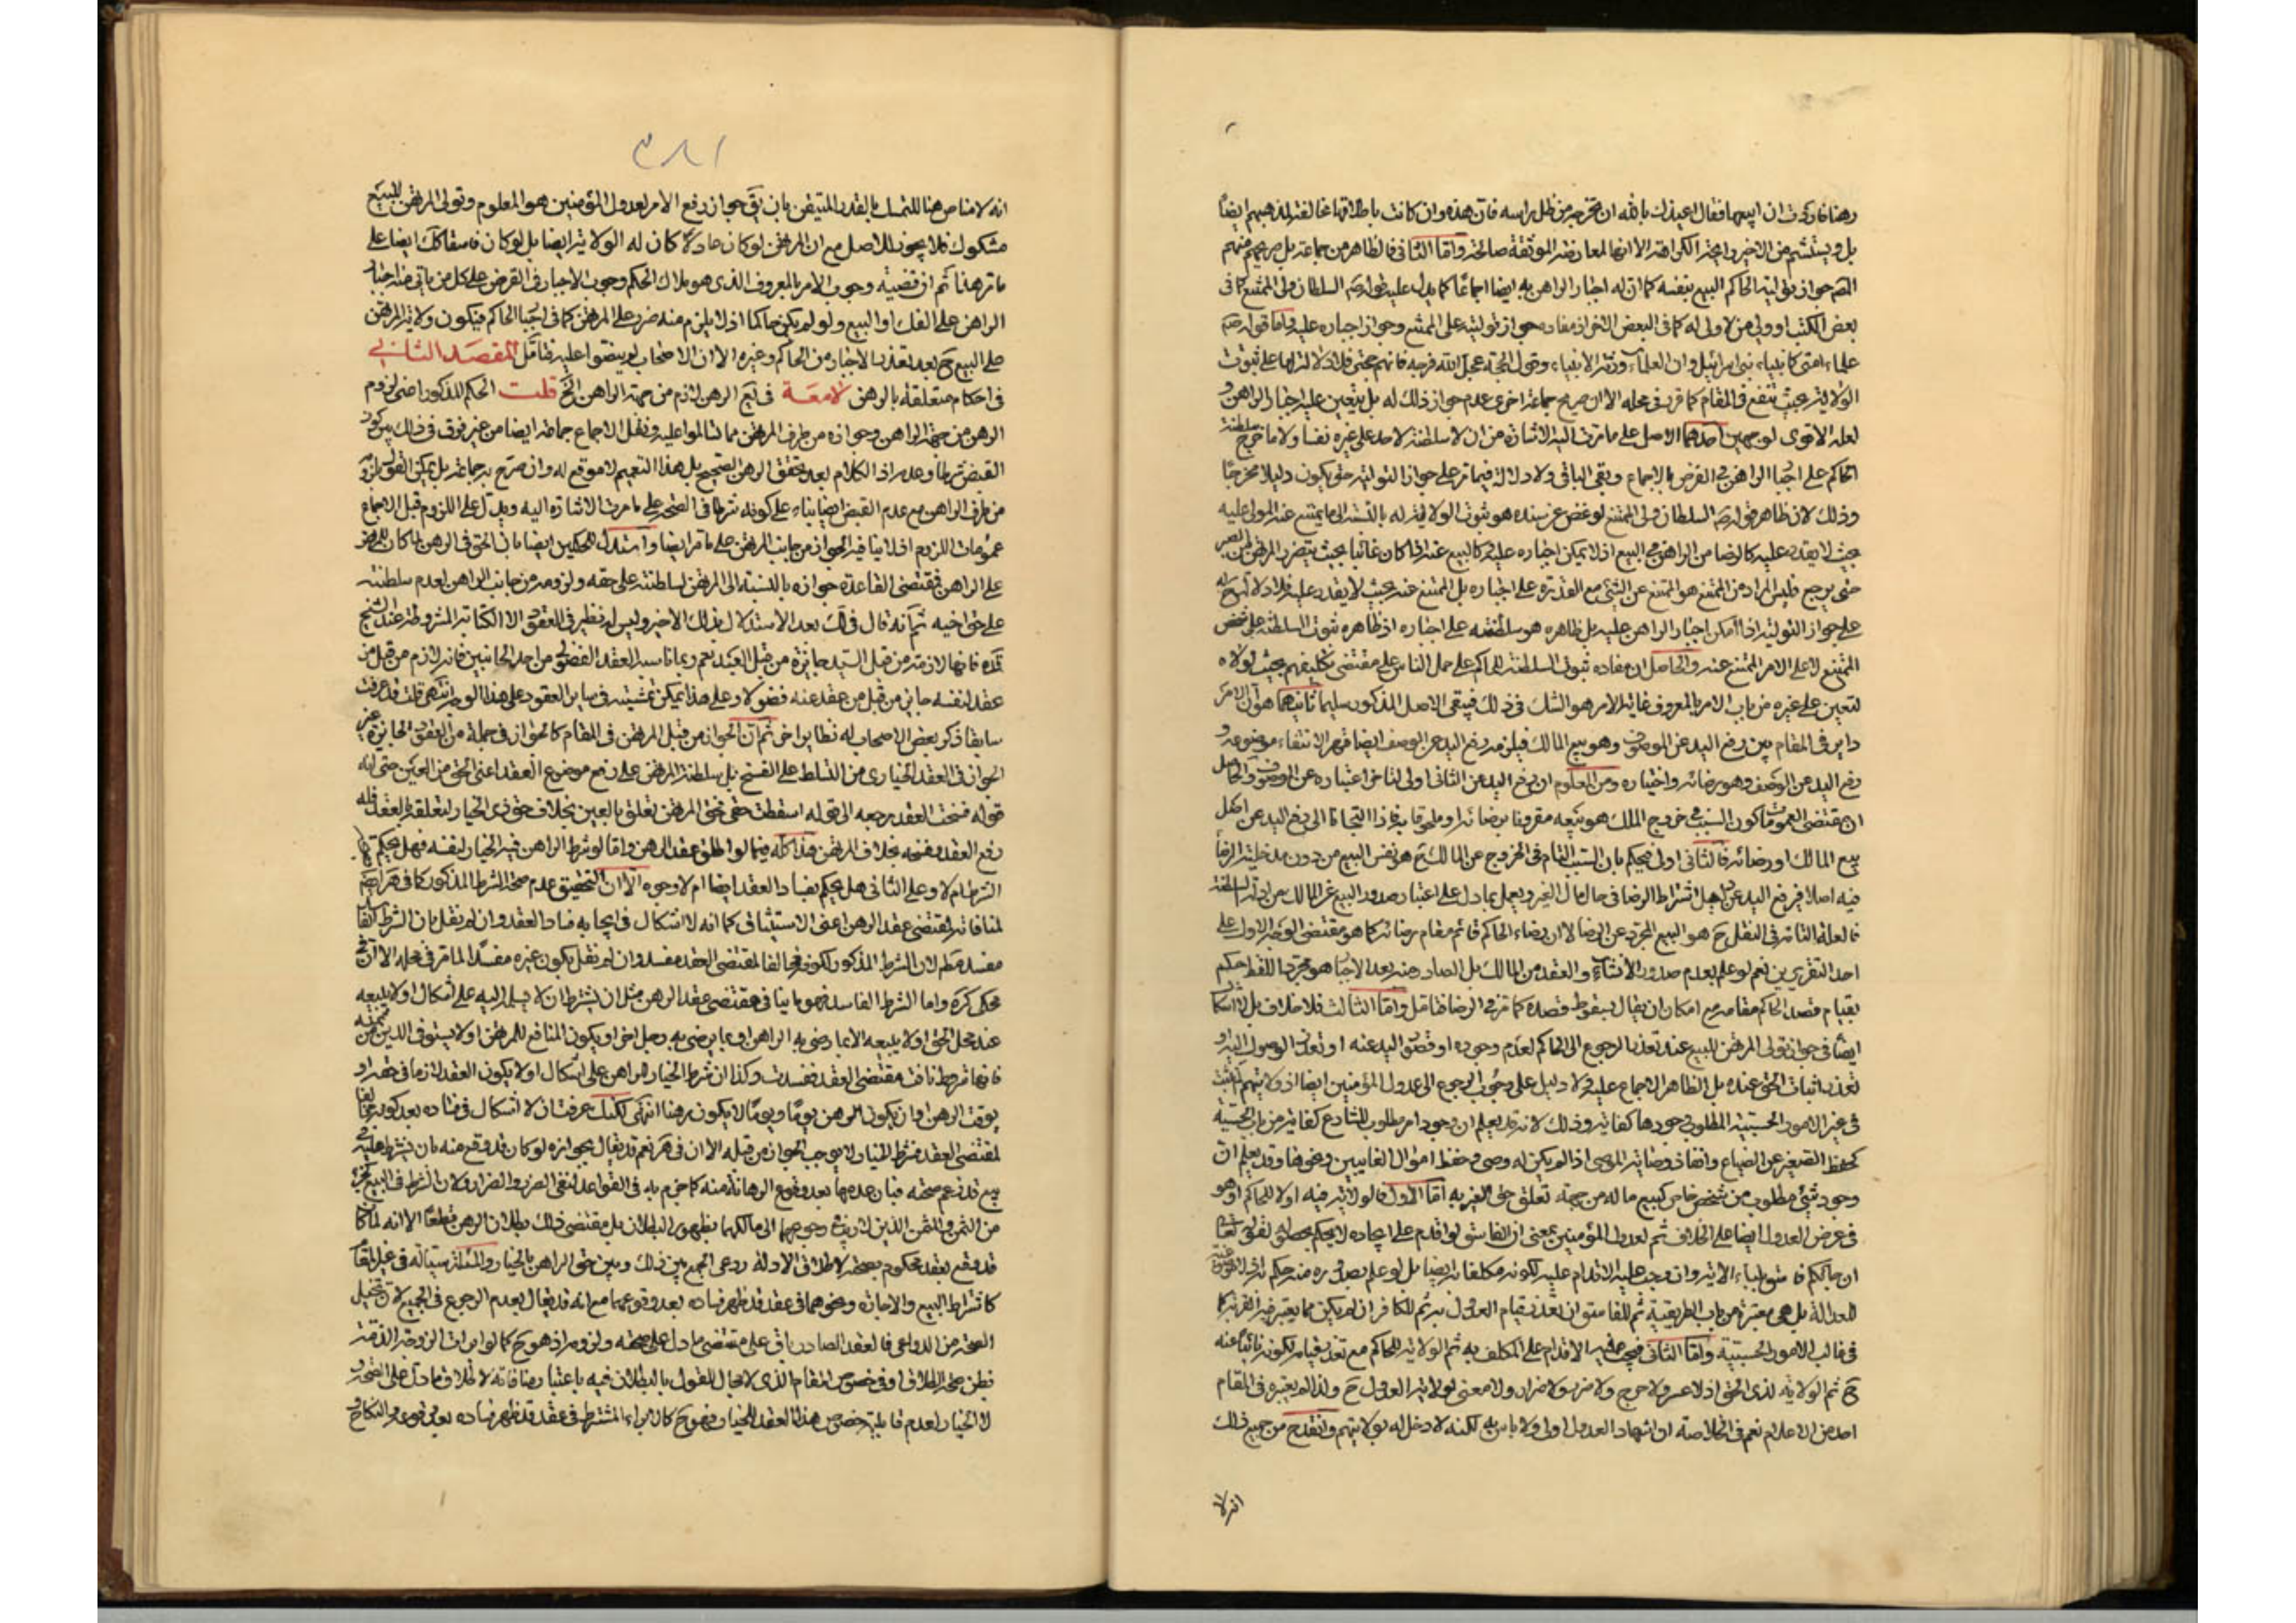 رهنا فاردت ان ابيعها فقال اعيذك بالله ان تخرجه من ظل راسه فان هذه وان كانت باطلاقها مخالفة لمذهبهم ايضا
بل ويستشم من الاخير واجد الكراهة الا انها لمعارضة الموثقة صالحة واما الثانى فالظاهر من جماعة بل صريحهم منهم
جواز تولية الحاكم البيع بنفسه كما ان له اجبار الراهن به ايضا اجماعا كما يدل عليه قوله السلطان ولى الممتنع كما فى
بعض الكتب او ولى من لا ولى له كما فى البعض الاخر اذ مفاده جواز توليته على الممتنع وجواز اجباره عليه واما قوله
علماء امتى كانبياء بنى اسرائيل وان العلماء ورثة الانبياء وقول الحجة عجل الله فرجه فانهم حجتى فلا دلالة لها على ثبوت
الولاية بحيث تنفع فى المقام كما قرر فى محله الا ان صريح جماعة اخرى عدم جواز ذلك له بل يتعين عليه اجبار الراهن و
لعله الاقوى لوجهين احدهما الاصل على ما مرت اليه الاشارة من ان لا سلطنة لاحد على غيره نفسا ولا ما خرج سلطنة
الحاكم على اجبار الراهن فى الفرض بالاجماع وبقى الباقى ولا دلالة فيما مر على جواز التولية حتى يكون دليلا مخرجا
وذلك لان ظاهر قوله السلطان ولى الممتنع لو غض عن سنده هو ثبوت الولاية له بالنسبة الى ما يمتنع عنه المولى عليه
بحيث لا يقدر عليه كالرضا من الراهن فى البيع اذ لا يمكن اجباره عليه كالبيع عنه اذا كان غائبا بحيث يتضرر المرتهن بالصبر
حتى يرجع فليس المراد من الممتنع هو الممتنع عن الشئ مع القدرة على اجباره بل الممتنع عنه بحيث لا يقدر عليه فلا دلالة له
على جواز التولية اذا امكن اجبار الراهن عليه بل ظاهره هو سلطنته على اجباره اذ ظاهره ثبوت السلطنة على شخص
الممتنع لا على الامر الممتنع عنه والحاصل ان مفاده ثبوت السلطنة للحاكم على حمل الناس على مقتضى تكليفهم بحيث لولاه
لتعين على غيره من باب الامر بالمعروف غاية الامر هو الشك فى ذلك فيبقى الاصل المذكور سليما ثانيهما هو ان الامر
داير فى المقام بين رفع اليد عن الموصوف وهو بيع المالك فيلزمه رفع اليد عن الوصف ايضا قهرا لانتفاء موضوعه و
رفع اليد عن الوصف وهو رضائه واختياره ومن المعلوم ان رفع اليد عن الثانى اولى لتاخر اعتباره عن الوصف والحاصل
ان مقتضى العمومات كون السبب فى خروج الملك هو بيعه مقرونا برضائه او ملحوقا به فاذا التجانا الى رفع اليد عن اصل
بيع المالك او رضائه فالثانى اولى فيحكم بان السبب التام فى الخروج عن المالك ح هو نفس البيع من دون مدخلية الرضا
فيه اصلا فيرفع اليد عن دليل اشتراط الرضا فى حل مال الغير ويعمل بما دل على اعتبار صدور البيع عن المالك
فالعلة التامة فى النقل ح هو البيع المجرد عن الرضا لا ان رضاء الحاكم قائم مقام رضائه كما هو مقتضى الوجه الاول على
احد التقريرين نعم لو علم بعدم صدور الانشاء والعقد من المالك بل الصادر منه بعد الاجبار هو مجرد اللفظ احكم
بقيام قصد الحاكم مقامه مع امكان ان يقال بسقوط قصده كما مر فى الرضا فتامل واما الثالث فلا خلاف بل لا اشكال
ايضا فى جواز تولى المرتهن للبيع عند تعذر الرجوع الى الحاكم لعدم وجوده او قصور اليد عنه او تعذر الوصول اليه او
تعذر اثبات الحق عنده بل الظاهر الاجماع عليه ولا دليل على وجوب الرجوع الى عدول المؤمنين ايضا اذ ولايتهم لم تثبت
فى غير الامور الحسبية المطلوب وجودها كفائية وذلك لانه قد يعلم ان وجود امر مطلوب للشارع كفاية من باب الحسبة
كحفظ الصغير عن الضياع وانفاذ وصاية الموصى اذا لم يكن له وصى وحفظ اموال الغايبين ونحوها وقد يعلم ان
وجود شئ مطلوب من شخص خاص كبيع ماله من جهة تعلق حق الغير به اما الاول فالولاية فيه اولا للحاكم او هو
فى عرض العدول ايضا على الخلاف ثم لعدول المؤمنين بمعنى ان الفاسق لو اقدم على ايجاده لا يحكم بحصوله لقوله تعالى
ان جائكم فاسق بنباء الاية وان وجب عليه الاقدام عليه لكونه مكلفا به ايضا بل لو علم بصدوره منه حكم
العدالة بل هى معتبرة من باب الطريقية ثم للفاسق ان تعذر قيام العدول به ثم للكافر ان لم يكن مما يعتبر فيه القربة كما
فى غالب الامور الحسبية واما الثانى فيجب فيه الاقدام على المكلف به ثم الولاية للحاكم مع تعذر قيامه لكونه نائبا عنه
ح ثم الولاية لذى الحق اذ لا عسر ولا حرج ولا ضرر ولا ضرار ولا معنى لولاية العدول ح ولذا لم يعتبره فى المقام
احد من الاعلام نعم فى الخلاصة ان اشهاد العدول اولى ولا باس به لكنه لا دخل له بولايتهم وانقدح من جميع ذلك
انه لا
انه لا مناص هنا للتمسك بالقدر المتيقن بان يق جواز رفع الامر لعدول المؤمنين هو المعلوم وتولى المرتهن للبيع
مشكوك فلا يجوز للاصل مع ان المرتهن لو كان عادلا كان له الولاية ايضا بل لو كان فاسقا كك ايضا على
ما مر هذا ثم ان قضية وجوب الامر بالمعروف الذى هو ملاك الحكم وجوب الاجبار فى الفرض على كل من ياتى منه اجبار
الراهن على الفك او البيع ولو لم يكن حاكما اذ لا يلزم منه ضرر على المرتهن كما فى اجبار الحاكم فيكون ولاية المرتهن
على البيع ح بعد تعذر الاجبار من الحاكم وغيره الا ان الاصحاب لم ينصوا عليه فتامل المقصد الثانى
فى احكام متعلقة بالرهن لامعة فى يع الرهن لازم من جهة الراهن الخ قلت الحكم المذكور اعنى لزوم
الرهن من جهة الراهن وجوازه من طرف المرتهن مما تسالموا عليه ونقل الاجماع جماعة ايضا من غير فرق فى ذلك بين كون
القبض شرطا وعدمه اذ الكلام بعد تحقق الرهن الصحيح بل هذا التعميم لا موقع له وان صرح به جماعة بل يمكن القول بلزومه
من طرف الراهن مع عدم القبض ايضا بناء على كونه شرطا فى الصحة على ما مرت الاشارة اليه ويدل على اللزوم قبل الاجماع
عمومات اللزوم اذ لا ينافيه الجواز من جانب المرتهن على ما مر ايضا واستدل للحكمين ايضا بان الحق فى الرهن لما كان للمرتهن
على الراهن فمقتضى القاعدة جوازه بالنسبة الى المرتهن لسلطنته على حقه ولزومه من جانب الراهن لعدم سلطنته
على حق اخيه ثم انه قال فى لك بعد الاستدلال بذلك الاخير وليس له نظير فى العقود الا الكتابة المشروطة عند الشيخ
فانها لازمة من قبل السيد جائزة من قبل العبد نعم وبما ناسبه العقد الفضولى من احد الجانبين فانه لازم من قبل من
عقد لنفسه جايز من قبل من عقد عنه فضولا وعلى هذا يمكن تمشيته فى سائر العقود على هذا الوجه انتهى قلت قد عرفت
سابقا ذكر بعض الاصحاب له نظاير اخر ثم ان الجواز من قبل المرتهن فى المقام كالجواز فى جملة من العقود الجايزة غير
الجواز فى العقد الخيارى من التسلط على الفسخ بل سلطنة المرتهن على رفع موضوع العقد اعنى الحق من العين حتى انه
قوله فسخت العقد يرجعه الى قوله اسقطت حقى فحق المرتهن تعلق بالعين بخلاف حق ذى الخيار لتعلقه بالعقد فله
رفع العقد وفسخه بخلاف المرتهن هذا كله فيما لو اطلق عقد الرهن واما لو شرط الراهن فيه الخيار لنفسه فهل يحكم بهذا
الشرط ام لا وعلى الثانى هل يحكم بفساد العقد ايضا ام لا وجوه الا ان التحقيق عدم صحة الشرط المذكور كما فى هر ايضا
لمنافاته لمقتضى عقد الرهن اعنى الاستيثاق كما انه لا اشكال فى ايجابه فساد العقد وان لم نقل بان الشرط الفاسد
مفسد مطم لان الشرط المذكور لكونه مخالفا لمقتضى العقد مفسد وان لم نقل بكون غيره مفسدا لما مر فى محله الا ان
محكى كره واما الشرط الفاسد فهو ما ينافى مقتضى عقد الرهن مثل ان يشترط ان لا يسلم اليه على اشكال او لا يبيعه
عند محل الحق او لا يبيعه الا بما رضى به الراهن او بما يرضى به رجل اخر او يكون المنافع للمرتهن او لا يستوفى الدين من ثمنه
فانها شروط نافت مقتضى العقد ففسدت وكذا ان شرط الخيار للراهن على اشكال او لا يكون العقد لازما فى حقه او
يوقت الرهن او ان يكون الرهن يوما ويوما لا يكون رهنا انتهى لكنك عرفت ان لا اشكال فى فساده بعد كونه مخالفا
لمقتضى العقد فشرط الخيار لا يوجب الجواز من قبله الا ان فى هر نعم قد يقال بجوازه لو كان قد وقع منه بان يشترط عليه فى
بيع قد زعم صحته فبان عدمها بعد وقوع الرهانة منه كما جزم به فى القواعد لنفى الضرر والضرار ولان الشرط فى البيع كجزء
من الثمن والمثمن الذين لا ريب فى رجوعهما الى مالكهما بظهور البطلان بل مقتضى ذلك بطلان الرهن قطعا الا انه لما كان
قد وقع بعقد محكوم بصحته لاطلاق الادلة روعى الجمع بين ذلك وبين حق الراهن بالخيار والمسئلة سيالة فى غير المقام
كاشتراط البيع والاجارة ونحوهما فى عقد قد ظهر فساده بعد وقوعهما مع انه قد يقال بعدم الرجوع فى الجميع لان تخيل
الصحة من الدواعى فالعقد الصادر باق على مقتضى ما دل على صحته ولزومه اذ هو ح كما لو ابرات الزوجة الذمة
بظن صحة الطلاق او فى خصوص المقام الذى لا مجال للقول بالبطلان فيه باعتبار منافاته لاطلاق ما دل على الصحة و
لا الخيار لعدم قابلية خصوص هذا العقد للخيار فهو ح كابراء المشترط فى عقد قد ظهر فساده بعد وقوعه والنكاح